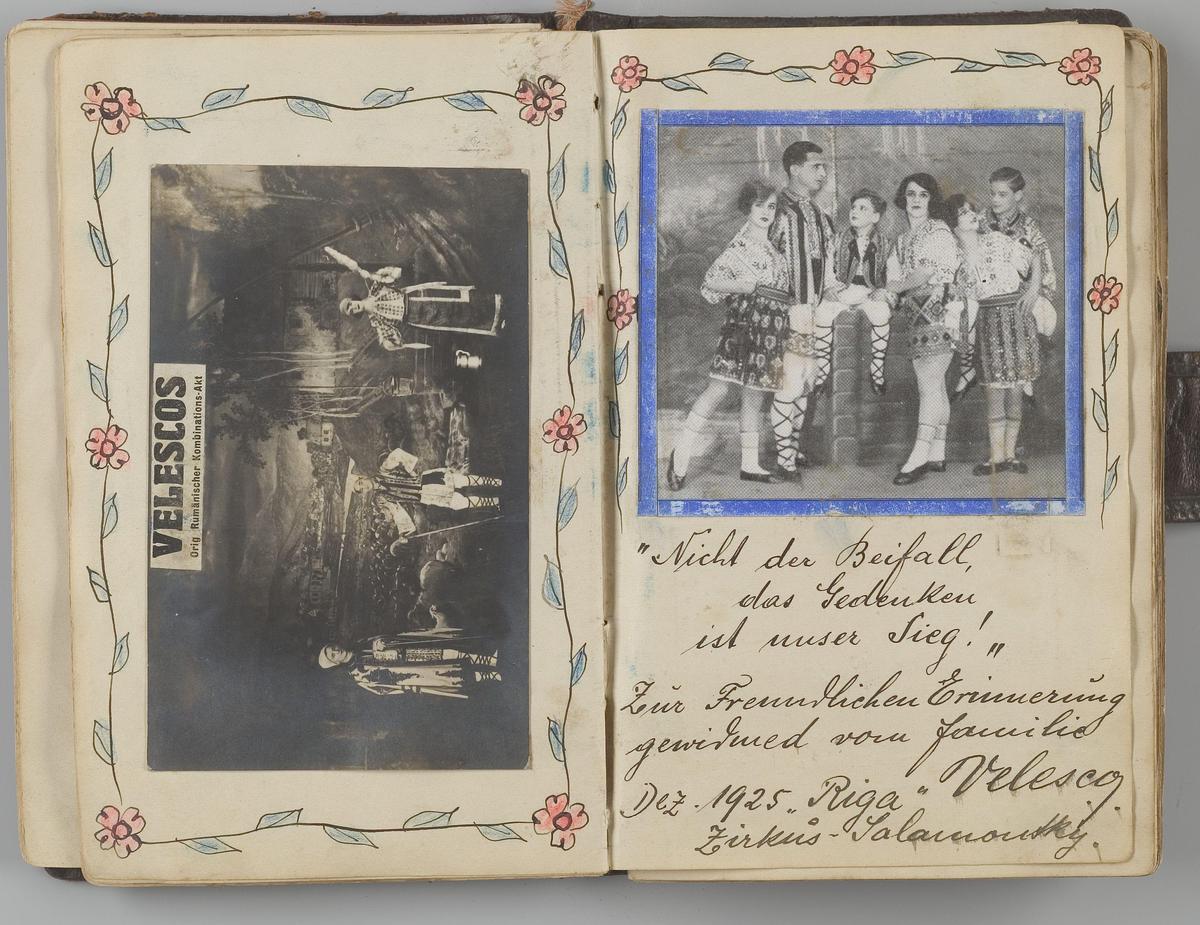 VELESCOS
Orig. Rumänischer Kombinations-Akt
"Nicht der Beifall,
das Gedenken
ist unser Sieg!"
Zur Freundlichen Erinnerung
gewidmed vom familie
Velesco.
Dez. 1925 "Riga"
Zirkus-Salamonsky.